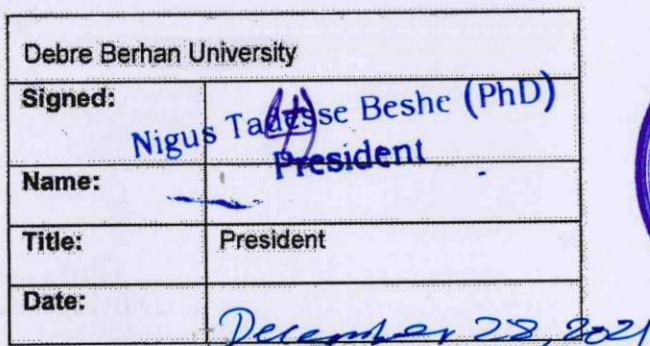 Debre Berhan University
Signed:
Nigus Tadesse Beshe (PhD)
President
Name:
Title: President
Date: December 28, 2021